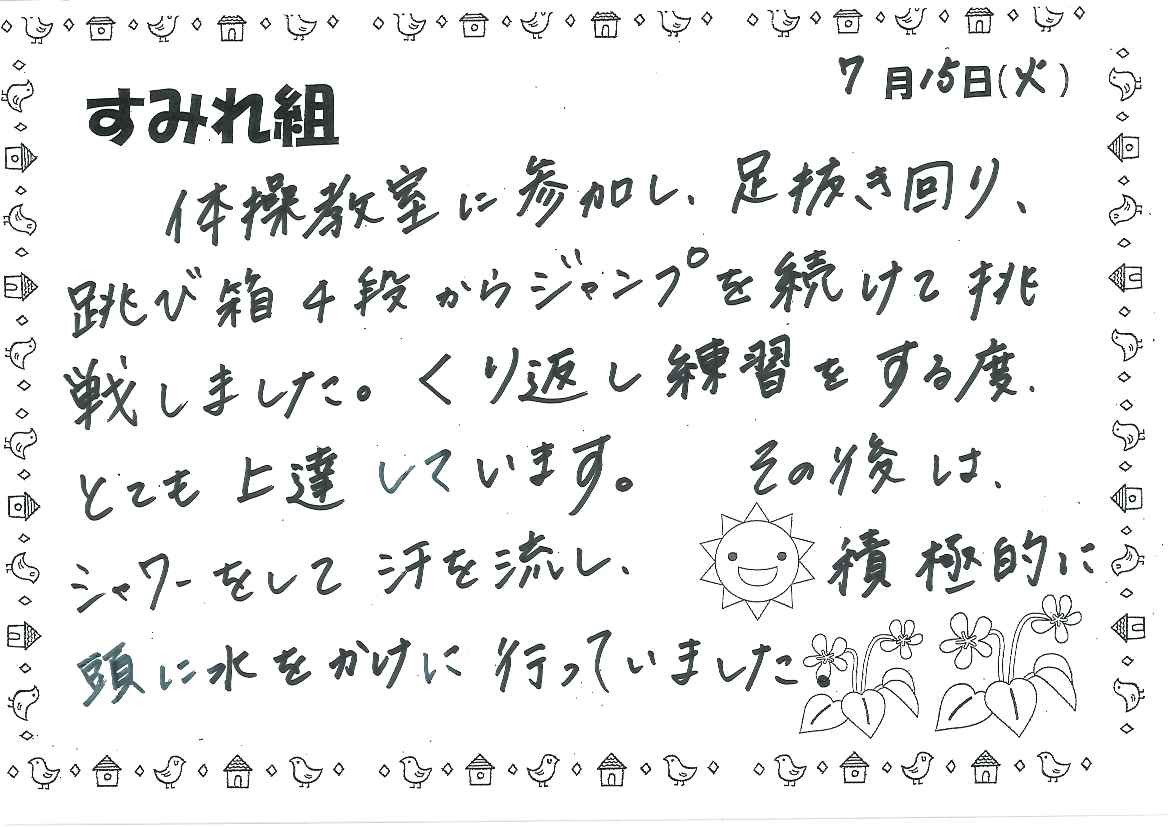 7月15日(火)
すみれ組
体操教室に参加し、足抜き回り、
跳び箱4段からジャンプを続けて挑
戦しました。くり返し練習をする度、
とても上達しています。 その後は、
シャワーをして汗を流し、 積極的に
頭に水をかけに行っていました。